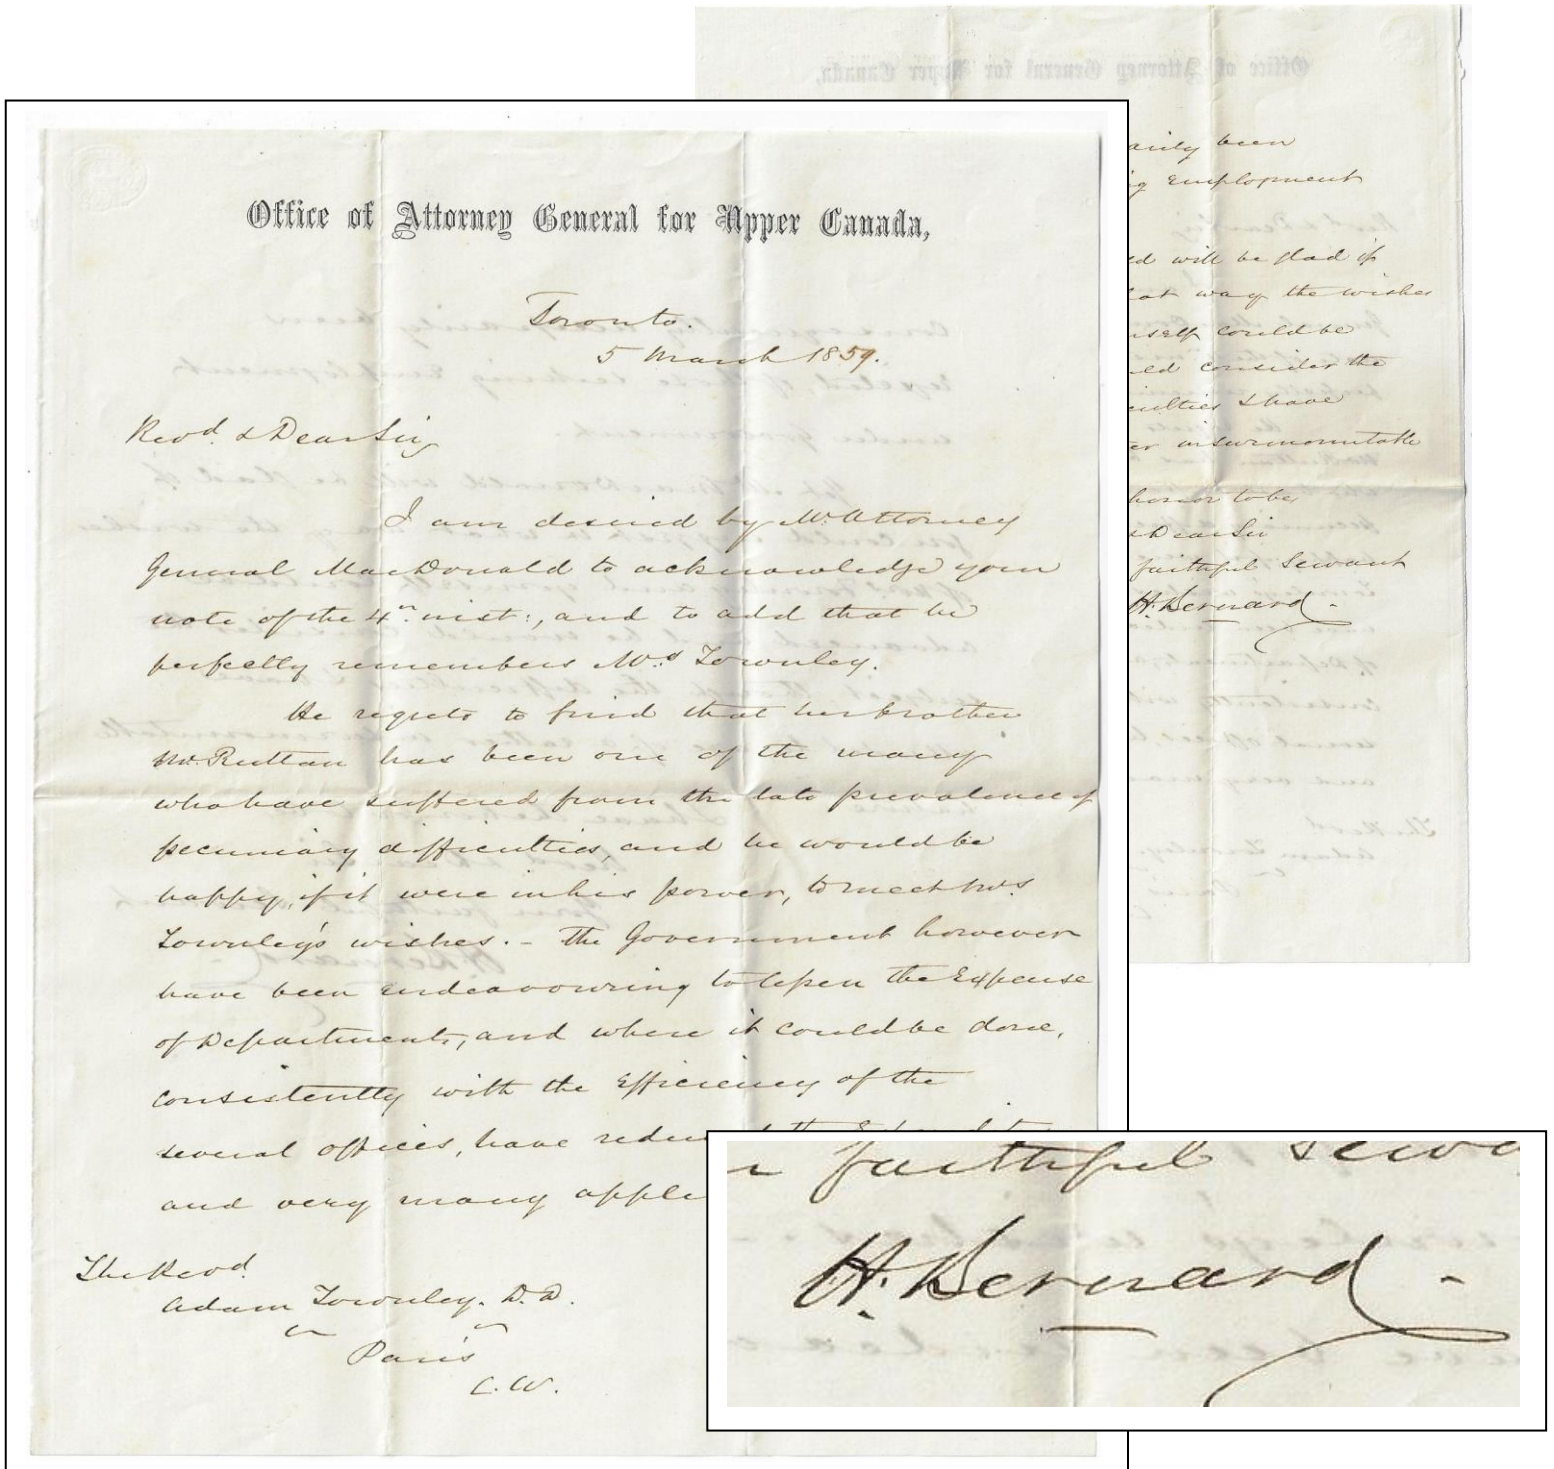 Office of Attorney General for Upper Canada,
Toronto.
5 March 1859.
Revd. & Dear Sir
I am desired by Mr. Attorney
General MacDonald to acknowledge your
note of the 4th inst:, and to add that he
perfectly remembers Mrs Townley.
He regrets to find that her brother
Mr. Ruttan has been one of the many
who have suffered from the late prevalence of
pecuniary difficulties, and he would be
happy, if it were in his power, to meet Mrs
Townley's wishes. - The Government however
have been endeavouring to lessen the Expense
of Departments, and where it could be done,
consistently with the Efficiency of the
several offices, have redu
and very many appli
The Revd.
Adam Townley. D.D.
Paris
C.W.
arily been
ng Employment
ed will be glad if
hat way the wishes
mself could be
ld consider the
culties I have
er insurmountable
honor to be
& Dear Sir
faithful Servant
H. Bernard.
faithful Serva
H. Bernard.